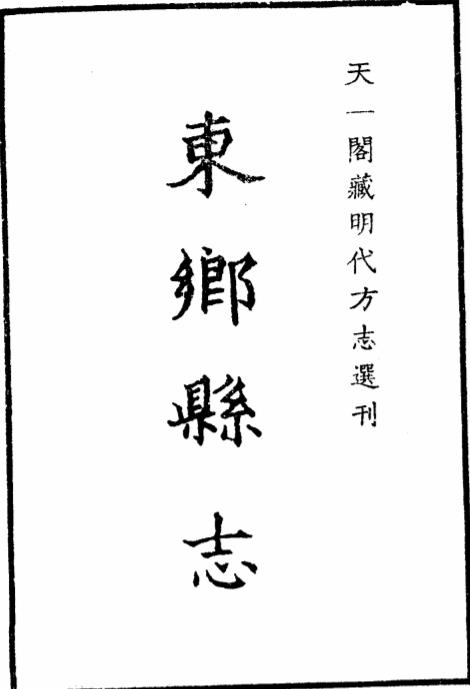 天一閣藏明代方志選刊
東鄉縣志